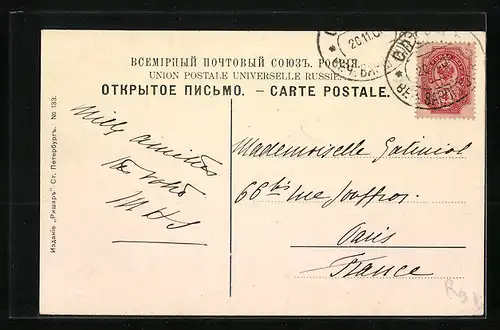 ВСЕМІРНЫЙ ПОЧТОВЫЙ СОЮЗЪ. РОССІЯ.
UNION POSTALE UNIVERSELLE RUSSIE.
ОТКРЫТОЕ ПИСЬМО. – CARTE POSTALE.
Изданіе „Ришаръ" Ст. Петербургъ. № 133.
Mille amitiés
Mademoiselle
66 bis rue Jouffroy
Paris
France